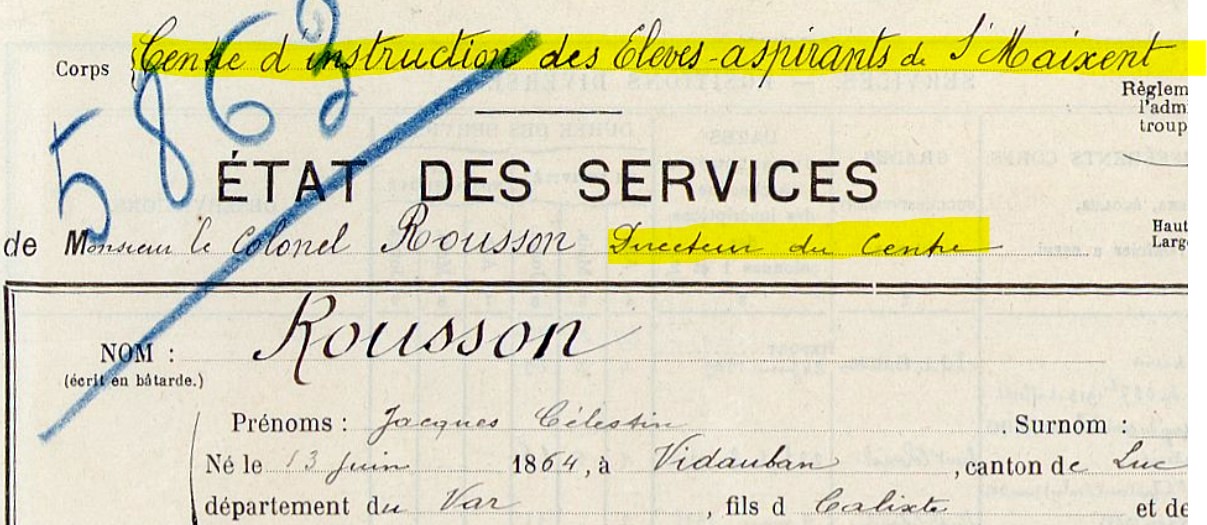 Corps Centre d'instruction des Eleves-aspirants de St Maixent
5863
Règlem
l'adm
troup
ÉTAT DES SERVICES
de Monsieur le Colonel Rousson Directeur du Centre
Haut
Larg
NOM : Rousson
(écrit en bâtarde.)
Prénoms : Jacques Célestin . Surnom :
Né le 13 Juin 1864, à Vidauban , canton de Luc
département du Var , fils d Calixte et de